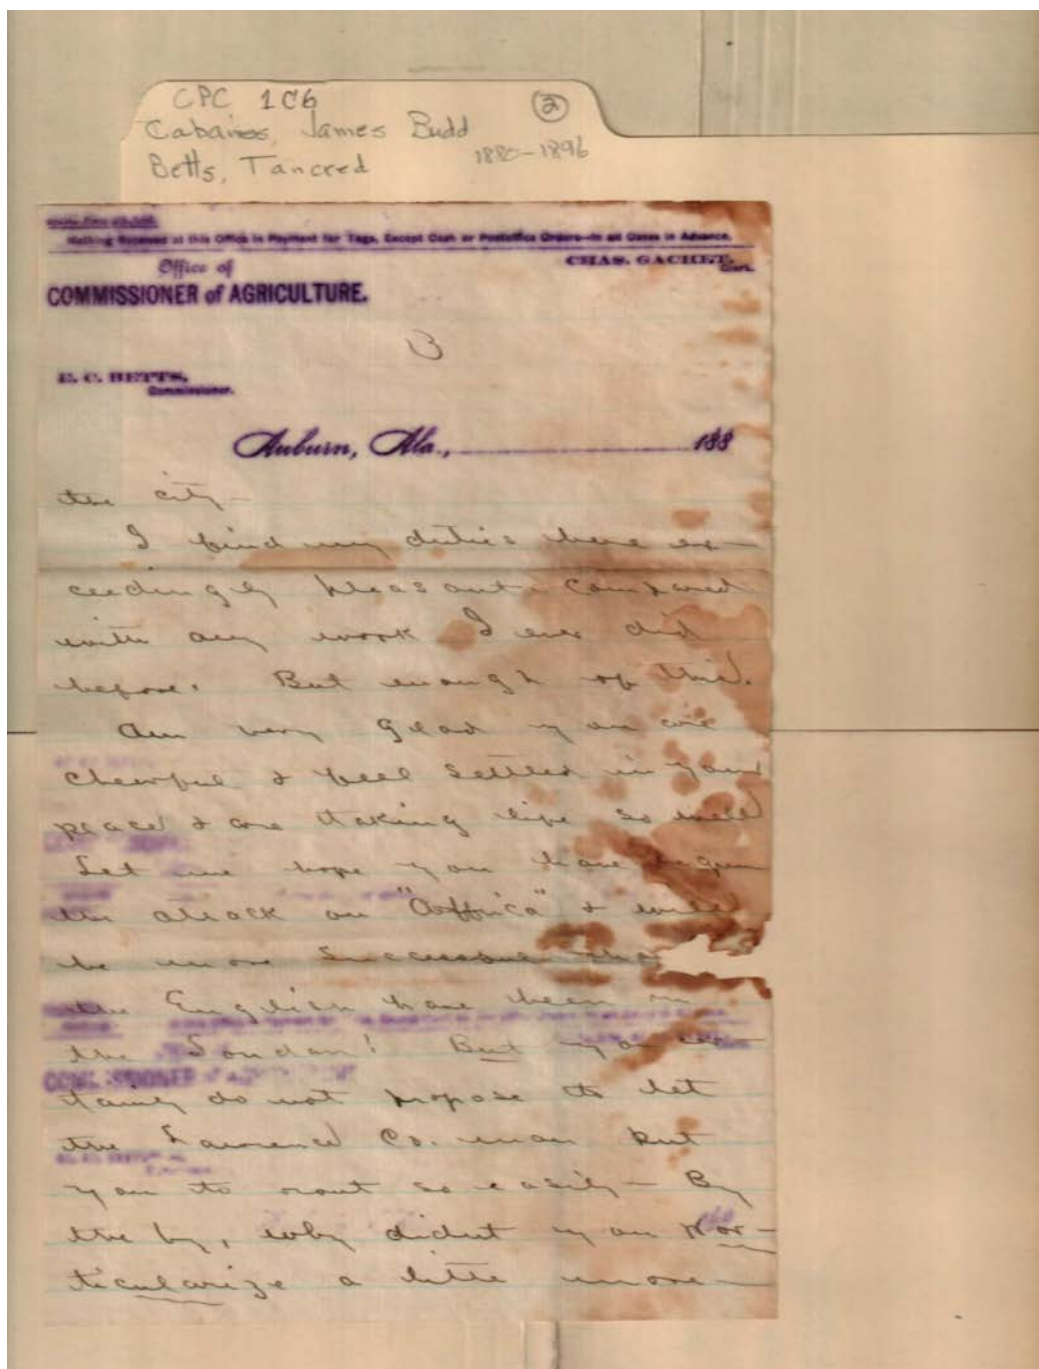 CPC 1C6 (2)
Cabaniss, James Budd
Betts, Tancred 1880-1896
Nothing Received at this Office in Payment for Tags, Except Cash or Postoffice Orders—in all Cases in Advance.
Office of CHAS. GACHET,
Clerk.
COMMISSIONER of AGRICULTURE.
3
E. C. BETTS,
Commissioner.
Auburn, Ala., 188
the city—
I find my duties here ex-
ceedingly pleasant compared
with any work I ever did
before. But enough of this.
Am very glad you are
cheerful & feel settled in your
place & are taking life so well
Let me hope you have begun
the attack on "Affrica" & will
be more successful tha
the English have been in
the Soudan! But you cer-
tainly do not propose to let
the Lawrence Co. man put
you to rout so easily— By
the by, why didnt you par-
ticularize a little more—